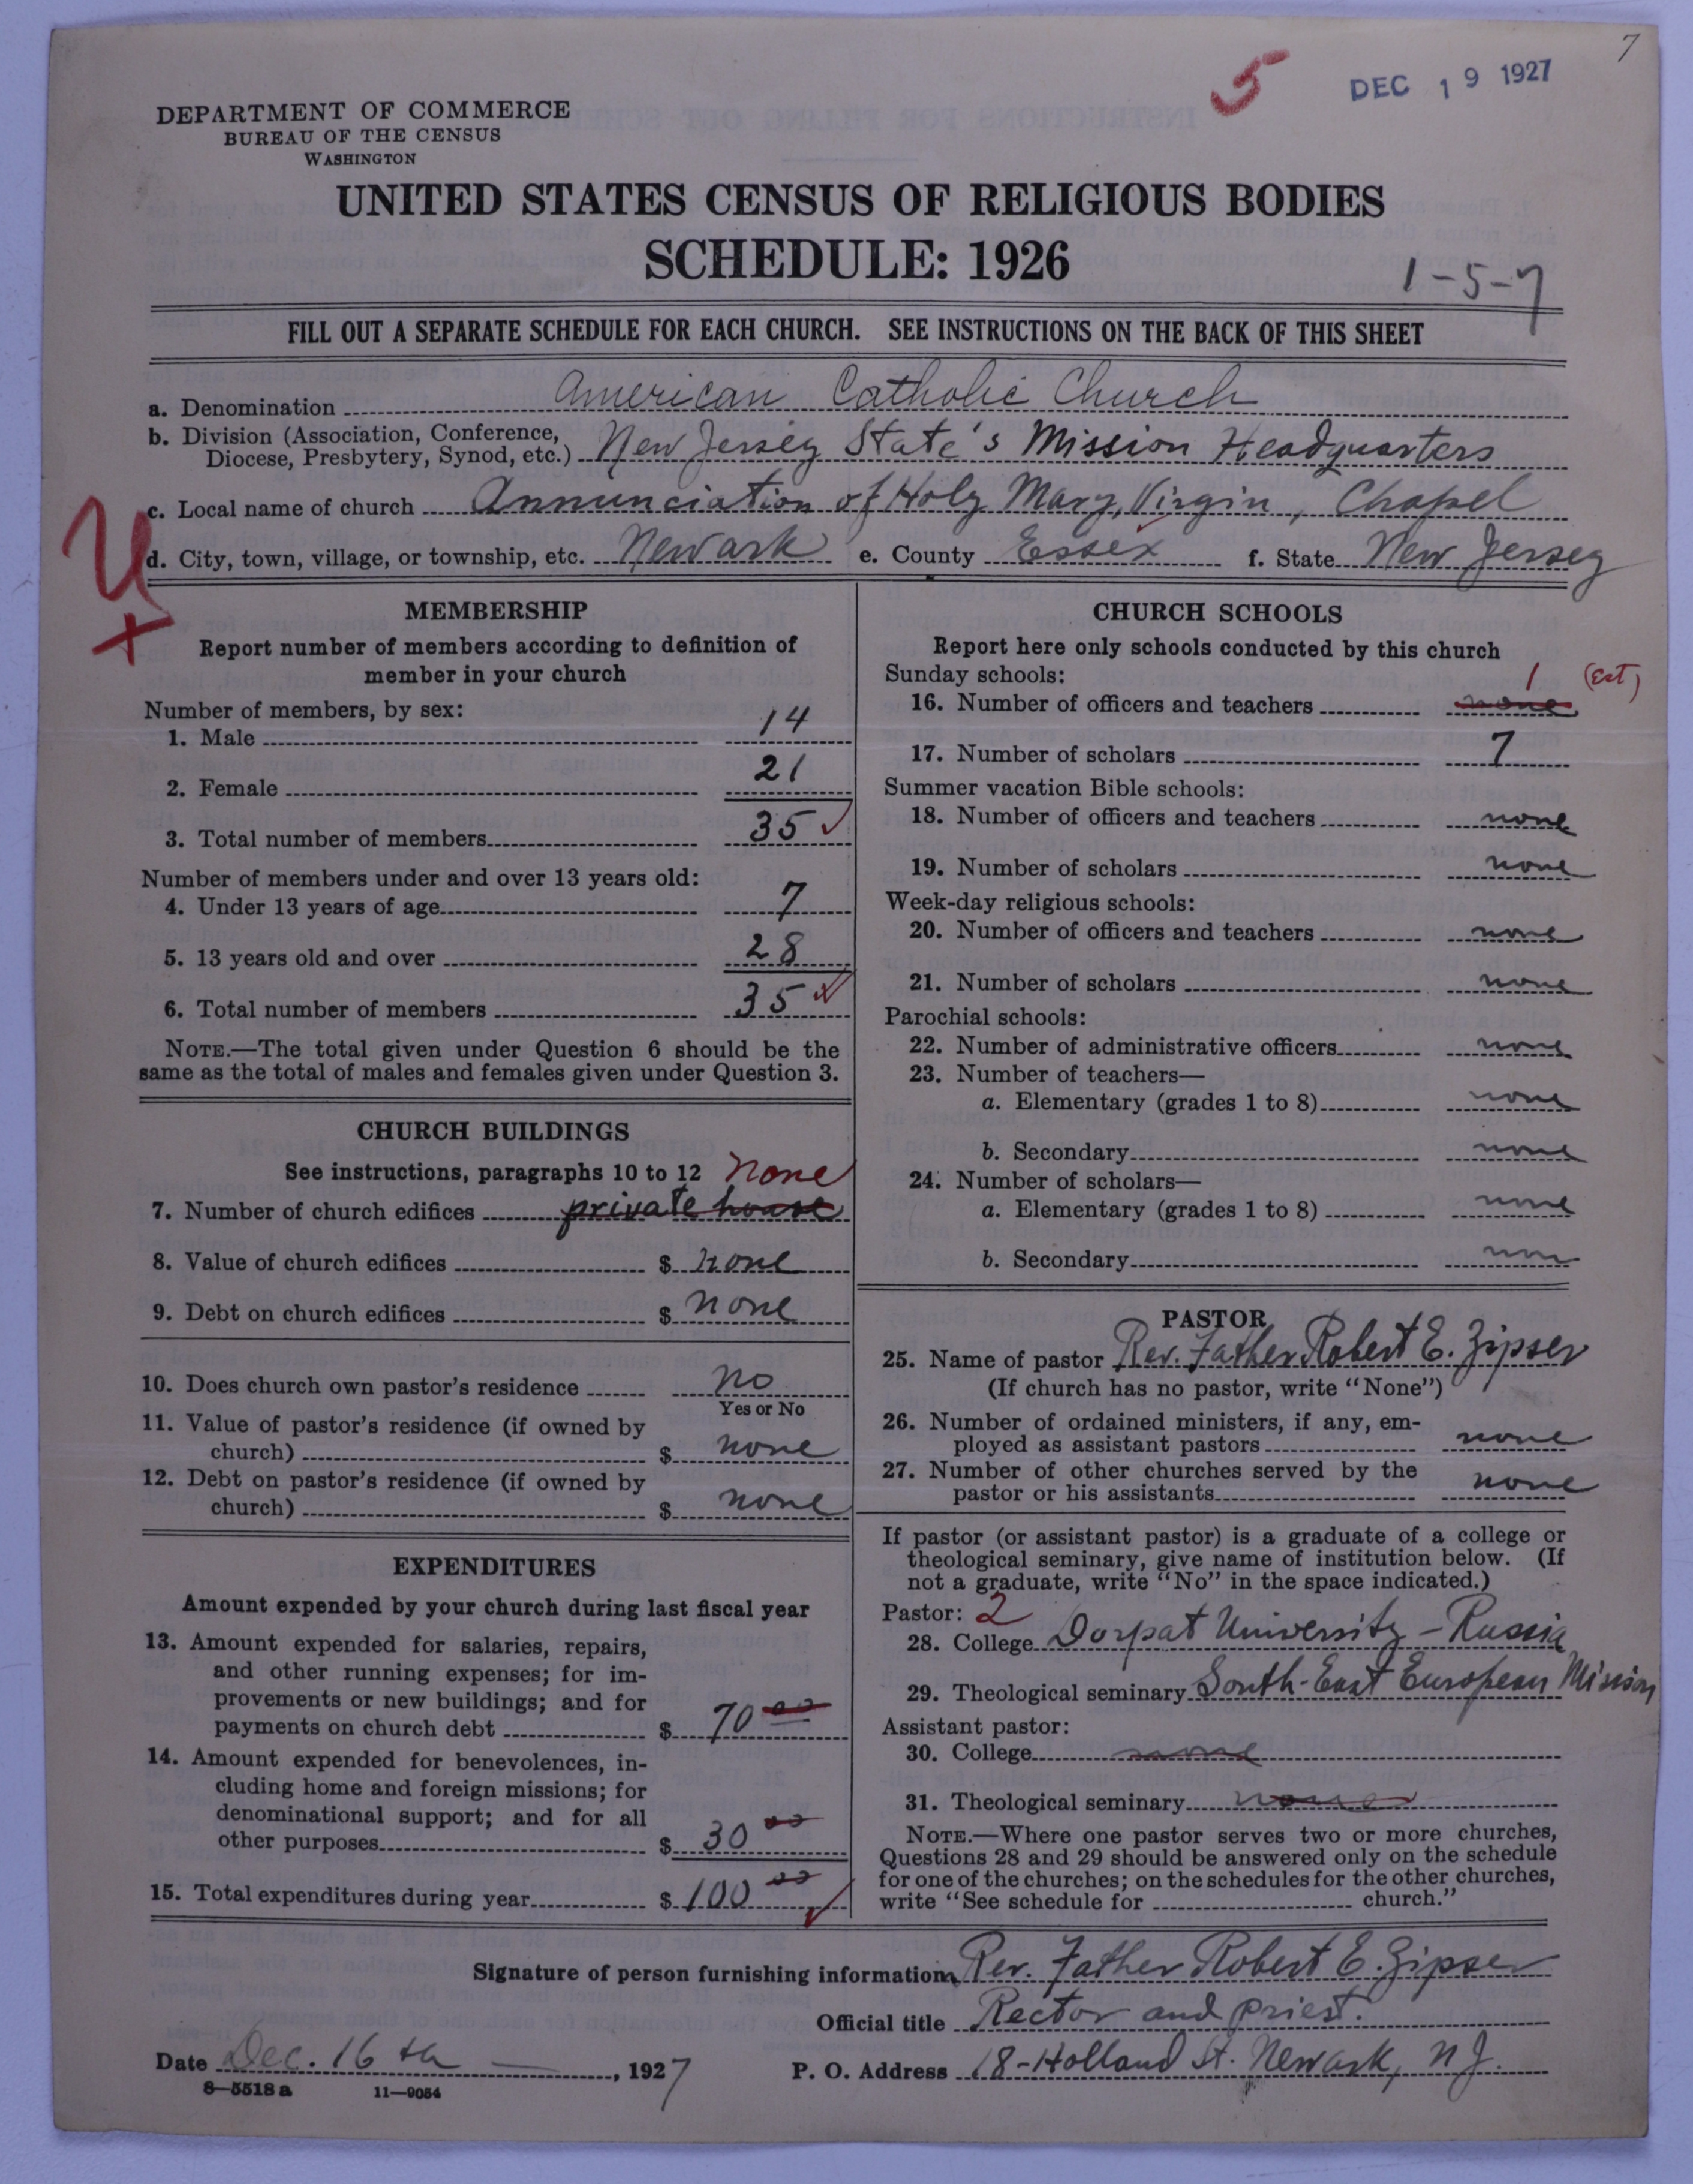 7
5
DEC 19 1927
DEPARTMENT OF COMMERCE
BUREAU OF THE CENSUS
WASHINGTON
UNITED STATES CENSUS OF RELIGIOUS BODIES
SCHEDULE: 1926
1-5-7
FILL OUT A SEPARATE SCHEDULE FOR EACH CHURCH. SEE INSTRUCTIONS ON THE BACK OF THIS SHEET
a. Denomination American Catholic Church
b. Division (Association, Conference, Diocese, Presbytery, Synod, etc.) New Jersey State's Mission Headquarters
c. Local name of church Annunciation of Holy Mary, Virgin, Chapel
U
d. City, town, village, or township, etc. Newark e. County Essex f. State New Jersey
+
MEMBERSHIP
Report number of members according to definition of
member in your church
Number of members, by sex:
1. Male 14
2. Female 21
3. Total number of members 35 ✓
Number of members under and over 13 years old:
4. Under 13 years of age 7
5. 13 years old and over 28
6. Total number of members 35 ✓
NOTE.—The total given under Question 6 should be the
same as the total of males and females given under Question 3.
CHURCH BUILDINGS
See instructions, paragraphs 10 to 12 none
7. Number of church edifices private house
8. Value of church edifices $ none
9. Debt on church edifices $ none
10. Does church own pastor's residence no
Yes or No
11. Value of pastor's residence (if owned by
church) $ none
12. Debt on pastor's residence (if owned by
church) $ none
EXPENDITURES
Amount expended by your church during last fiscal year
13. Amount expended for salaries, repairs,
and other running expenses; for im-
provements or new buildings; and for
payments on church debt $ 70 00
14. Amount expended for benevolences, in-
cluding home and foreign missions; for
denominational support; and for all
other purposes $ 30 00
15. Total expenditures during year $ 100 00 ✓
CHURCH SCHOOLS
Report here only schools conducted by this church
Sunday schools: 1 (Est)
16. Number of officers and teachers none
17. Number of scholars 7
Summer vacation Bible schools:
18. Number of officers and teachers none
19. Number of scholars none
Week-day religious schools:
20. Number of officers and teachers none
21. Number of scholars none
Parochial schools:
22. Number of administrative officers none
23. Number of teachers—
a. Elementary (grades 1 to 8) none
b. Secondary none
24. Number of scholars—
a. Elementary (grades 1 to 8) none
b. Secondary non
PASTOR
25. Name of pastor Rev. Father Robert E. Zipser
(If church has no pastor, write "None")
26. Number of ordained ministers, if any, em-
ployed as assistant pastors none
27. Number of other churches served by the
pastor or his assistants none
If pastor (or assistant pastor) is a graduate of a college or
theological seminary, give name of institution below. (If
not a graduate, write "No" in the space indicated.)
Pastor: 2
28. College Dorpat University - Russia
29. Theological seminary South-East European Mission
Assistant pastor:
30. College none
31. Theological seminary none
NOTE.—Where one pastor serves two or more churches,
Questions 28 and 29 should be answered only on the schedule
for one of the churches; on the schedules for the other churches,
write "See schedule for church."
Signature of person furnishing information Rev. Father Robert E. Zipser
Official title Rector and priest.
Date Dec. 16 th, 1927 P. O. Address 18-Holland St. Newark, N.J.
8—5518 a 11—9054